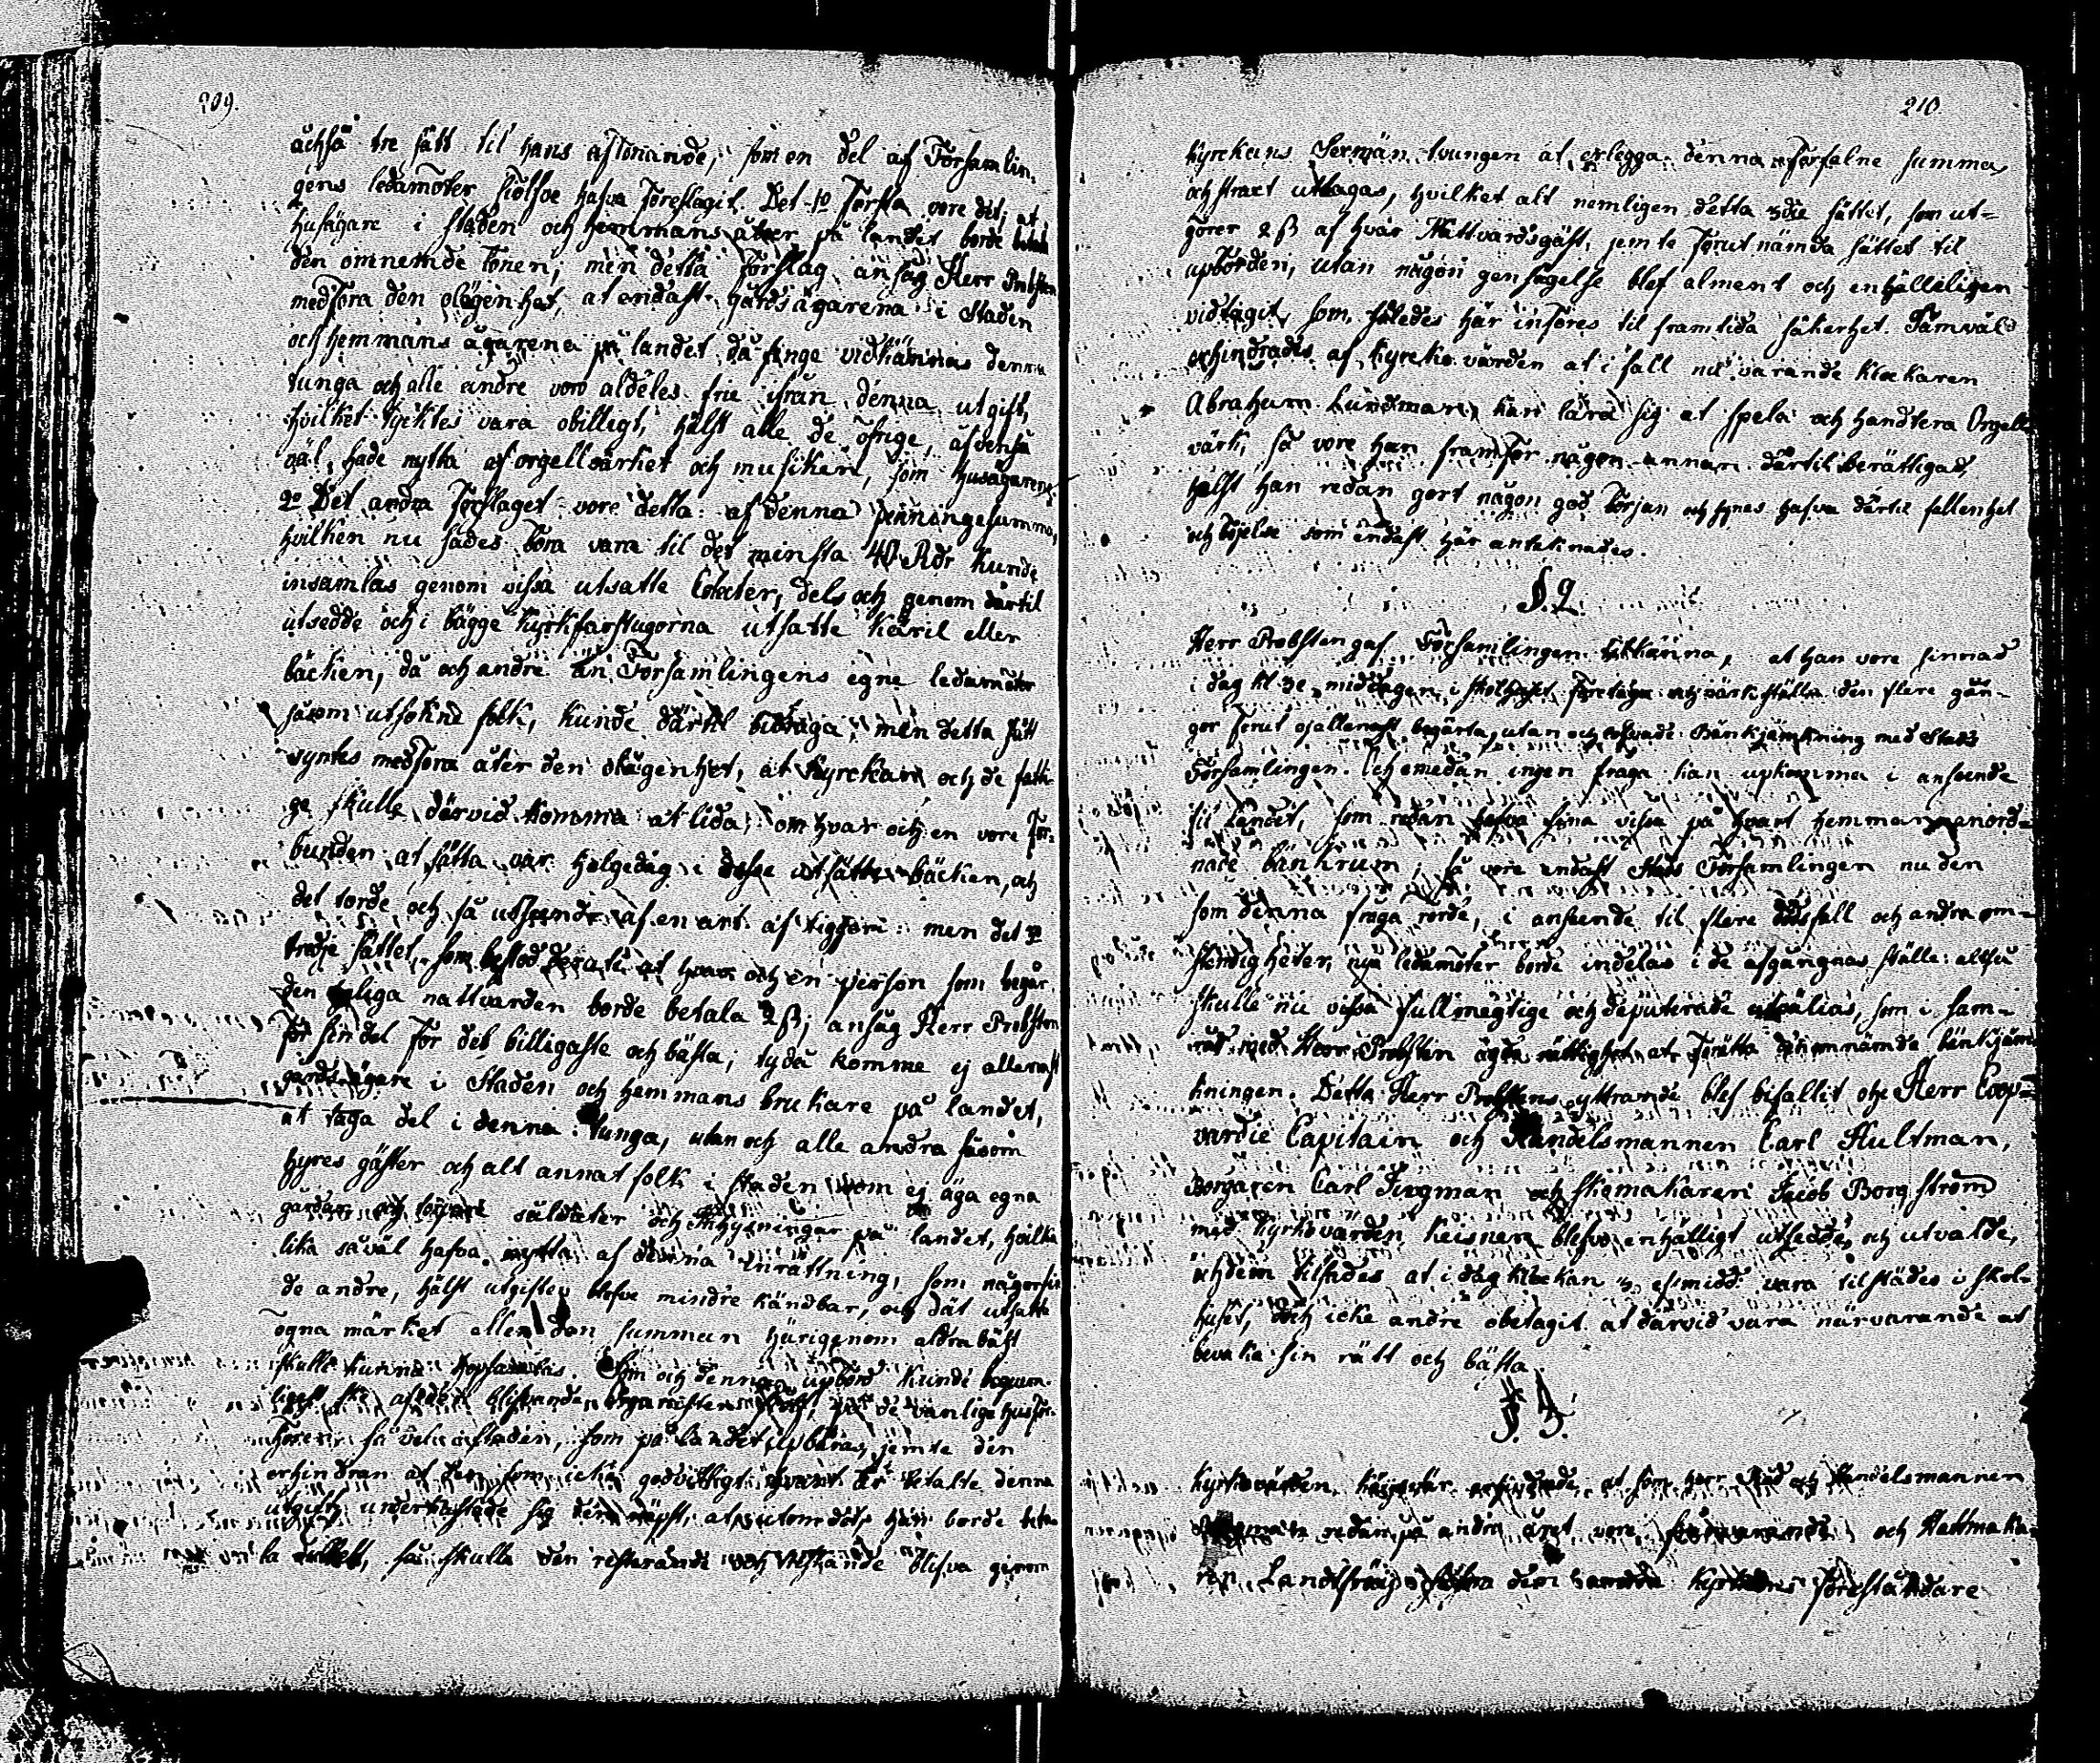 209.
åchså tre sätt til hans aflönande, som en del af Församlin-
gens ledamöter sielfve hafva föreslagit. Det 1o Första vore det, at
husägare i staden och hemmans åboer på landet borde betala
den omnemde lönen; men detta förslag ansåg Herr Probsten
medföra den olägenhet, at endast gårdsägarena i Staden
och hemmans ägarena på landet då finge vidkännas denna
tunga och alle andre voro aldeles frie ifrån denna utgift,
hvilket tycktes vara obilligt, hälst alle de öfrige, äfvenså
väl hade nytta af orgellvärket och musiken, som husägarena.
2o Det andra förslaget vore detta: af denna penningesumma,
hvilken nu sades böra vara til det minsta 40 Rdr kunde
insamlas genom vissa utsatte Collecter, dels och genom därtil
utsedde och i bägge kyrkfarstugorna utsatte käril eller
bäcken, då och andre än Församlingens egne ledamöter
såsom utsokne folk, kunde därtil bidraga; men detta sätt
syntes medföra åter den olägenhet, at Kyrckan och de fatti-
ga skulle därvid komma at lida, om hvar och en vore för-
bunden at sätta var helgedag i desse utsatte bäcken, och
det torde och få utseende af en art af tiggeri: men det 3o
tredje sättet som bestod deruti at hvar och en person som begår
den heliga nattvarden borde betala 2 ß, ansåg Herr Probsten
för sin del för det billigaste och bästa; ty då komme ej allenast
gårdsägare i Staden och hemmans brukare på landet,
at taga del i denna tunga, utan och alle andra såsom
hyres gäster och alt annat folk i staden som ej äga egna
gårdar, och torpare soldater och Inhysningar på landet, hvilka
lika såväl hafva nytta af denna inrättning, som någonsin
de andre, hälst utgiften blefve mindre kändbar, och dät utsatta
ögna märket eller den summan härigenom aldrabäst
skulle kunna hopsamlas. Som och denna upbörd kunde beqvem-
ligast ske af den blifvande Organisten sielf, vid de vanlige husför-
hören, så väl i staden, som på landet upbäras, jemte den
erhindran at den som icke godvilligt hvart år betalte denna
utgift, underkastade sig den näpst, at utom dät han borde beta-
la dubbelt, så skulle den resterande och utestående blifva genom
210.
Kyrckans Sexmän tvungen at erlegga denna förfalne summa
och straxt uttagas, hvilket alt nemligen detta 3die sättet, som ut-
görer 2 ß af hvar Nattvardsgäst, jemte förut nämda sättet til
upbörden, utan någon gensägelse blef alment och enhälleligen
vidtagit, som således här införes til framtida säkerhet. Jämväl
erhindrades af kyrcko värden at i fall nu varande klockaren
Abraham Lundman kan lära sig at spela och handtera Orgell-
värk, så vore han framför någon annan därtil berättigad,
hälst han redan gort någon god början och synes hafva därtil fallenhet
och böjelse som endast här antecknades.
§. 2
Herr Probsten gaf Församlingen tilkänna, at han vore sinnad
i dag kl. 3 e. middagen i skolhuset företaga och värkställa den flere gån-
gor förut ej allenast begärta, utan och lofvade Bänkjämkning med Stads
Församlingen. Och emedan ingen fråga kan upkomma i anseende
til Landet, som redan hafva sina vissa på hvart hemman anord-
nade bänkrum, så vore endast Stads Församlingen nu den
som denna fråga rörde, i anseende til flere dödsfall och andra om-
ständigheter, nya ledamöter borde indelas i de afgångnas ställe: altså
skulle nu vissa fullmägtige och deputerade utvälias, som i sam-
råd med Herr Probsten ägde rättighet at förätta den omnämde bänkjäm-
kningen. Detta Herr Probstens yttrande blef bifallit och Herr Coop-
vardie Capitain och Handelsmannen Carl Hultman,
Borgaren Carl Jungman och Skomakaren Jacob Borgström
med Kyrkovärden Keisnen blefvo enhälligt utsedde och utvalde,
och dem tilsades at i dag klockan 3 eftmidd. vara tilstädes i skol-
huset, och icke andre obetagit at därvid vara närvarande at
bevaka sin rätt och bästa.
§. 3.
Kyrkovärden erhindrade, at som herr Råd och Handelsmannen
redan på andra året vore frånvarande och Hattmaka-
ren Kyrkones föreståndare